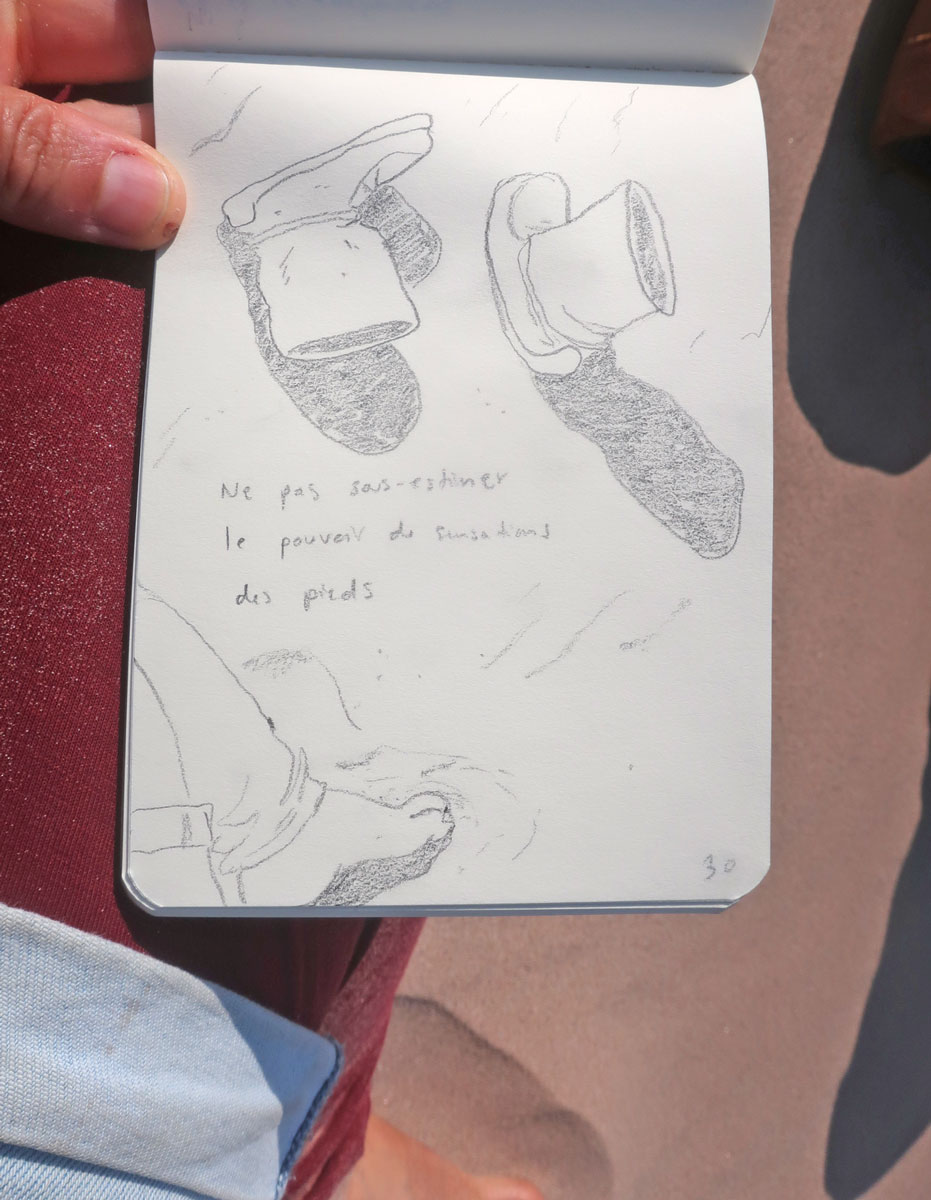 Ne pas sous-estimer
le pouvoir de sensations
des pieds
30